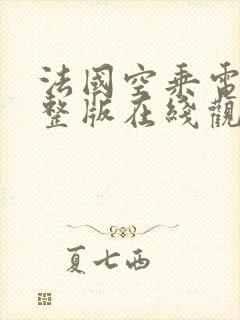 法國空乘電
整版在綫觀
夏七西